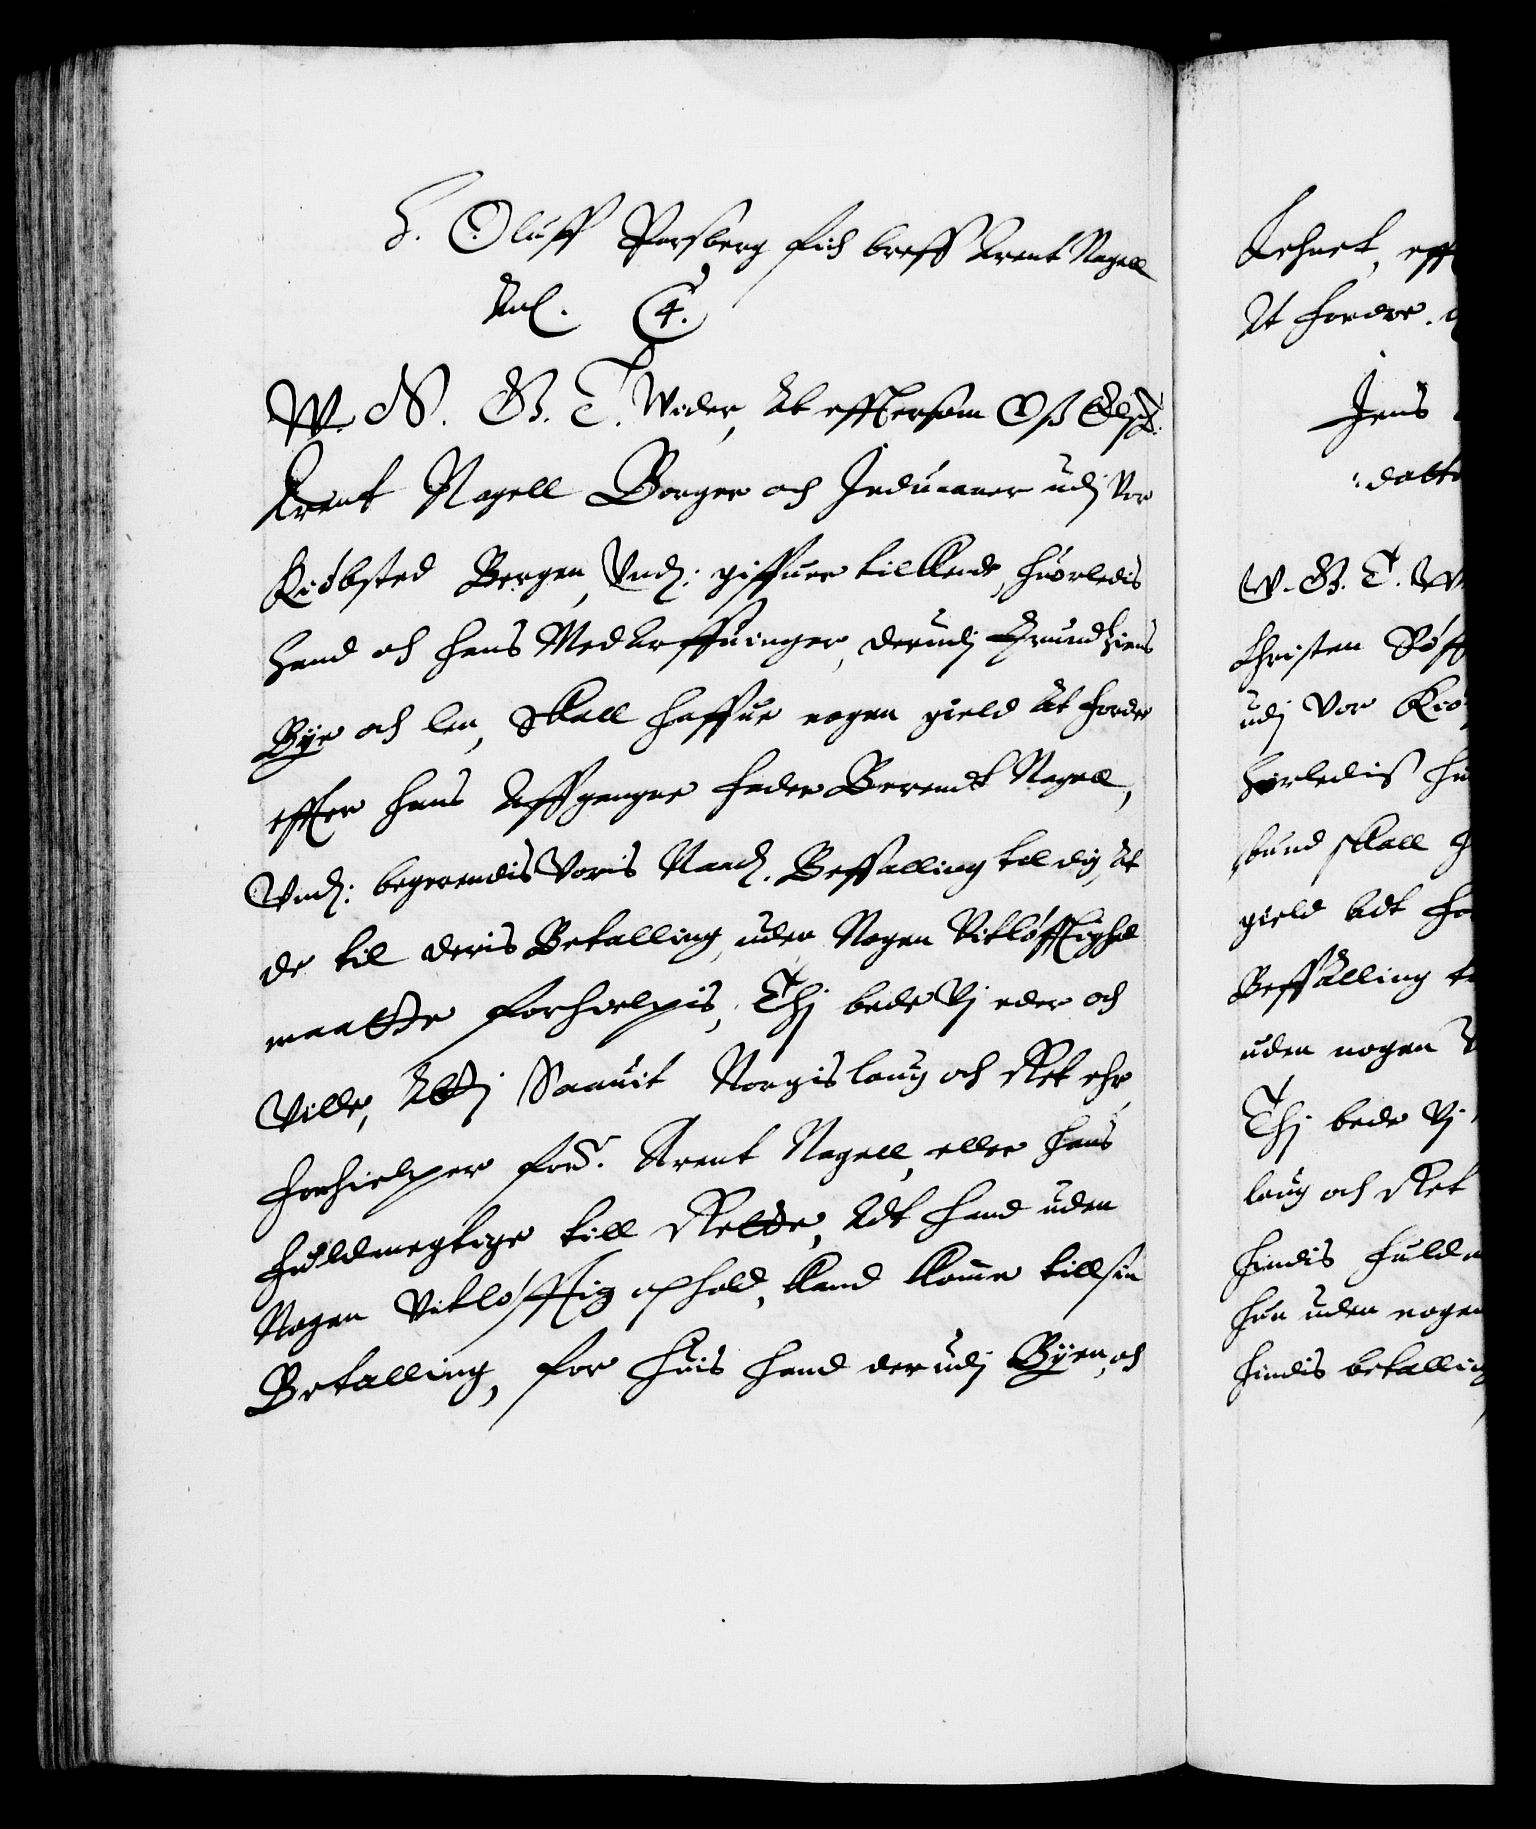 H. Oluff Parsberg fich breff Arent Nagell
Anl. C4.
W. S. G. T. Wider, At effttersom Oß Elsk:
Arent Nagell Borger och Induaaner udj Vor
Kiöbsted Bergen, Vnd: giffuer tilkende, huorledis
hand och hans Medarffuinger, derudj Trundhiens
Bye och len, Skall haffue nogen gield At fordre
effter hans Affgangne fader Berendt Nagell,
Vnd: begerendis Voris Naad. Beffalling til dig, At
de til deris Betalling uden Nogen Vitløfftighed
maatte forhielpis, Thj bede Vj eder och
Ville, Attj Saauit Norgis laug och Ret ehr,
forhielper forn. Arent Nagell, eller hans
fuldmegtige till Rette, Adt hand uden
Nogen Vitløfftig ophold, kand komme till sin
Betalling, for huis hand derudj Byen, och
Lehnet, eff
At fordre.
Jens
datt
W. G. T. W
Christen Søff
udj Vor Kiø
huorlediß hu
bund skall h
gield Adt fo
Beffalling t
uden nogen V
Thj bede Vj
laug och Ret
hindis fuldm
hun uden nogen
hindis betalling